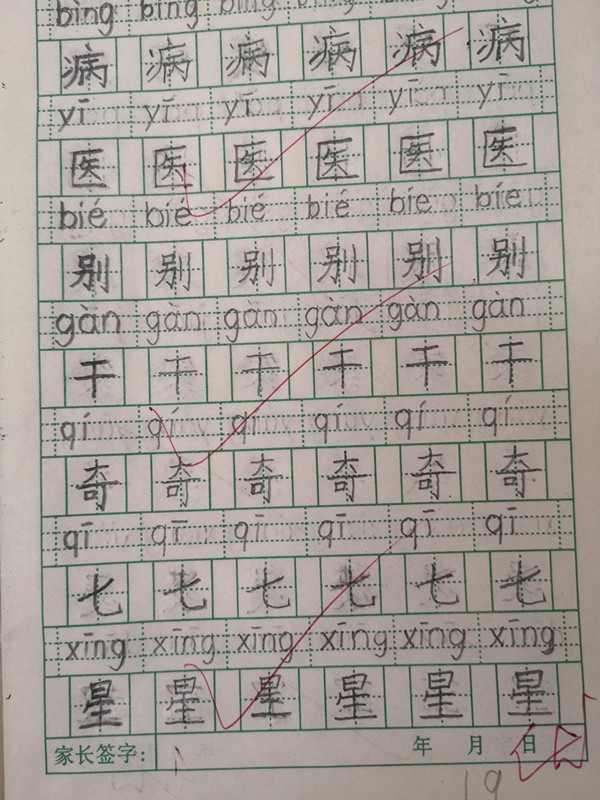 bìng bìng bìng bìng bìng bìng
病 病 病 病 病 病
yī yī yī yī yī yī
医 医 医 医 医 医
bié bié bié bié bié bié
别 别 别 别 别 别
gàn gàn gàn gàn gàn gàn
干 干 干 干 干 干
qí qí qí qí qí qí
奇 奇 奇 奇 奇 奇
qī qī qī qī qī qī
七 七 七 七 七 七
xīng xīng xīng xīng xīng xīng
星 星 星 星 星 星
家长签字: 年 月 日
19